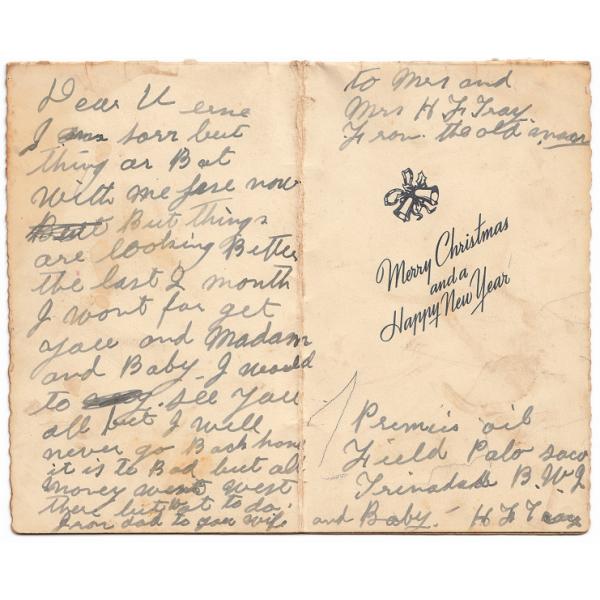 Dear Verne
I am sorr but
thing ar Bat
With me fore now
But But things
are looking Better
the last 2 month
I wont for get
you and Madam
and Baby. I would
to see you
all but I will
never go Back home
it is to Bad but all
money went west
there but wat to do.
From dad to you wife
and Baby.
to Mrs and
Mrs H F Tray
From. the old man
Merry Christmas
and a
Happy New Year
Premiis oil
Field Palo saco
Trinadad B. W. I
H F Tray